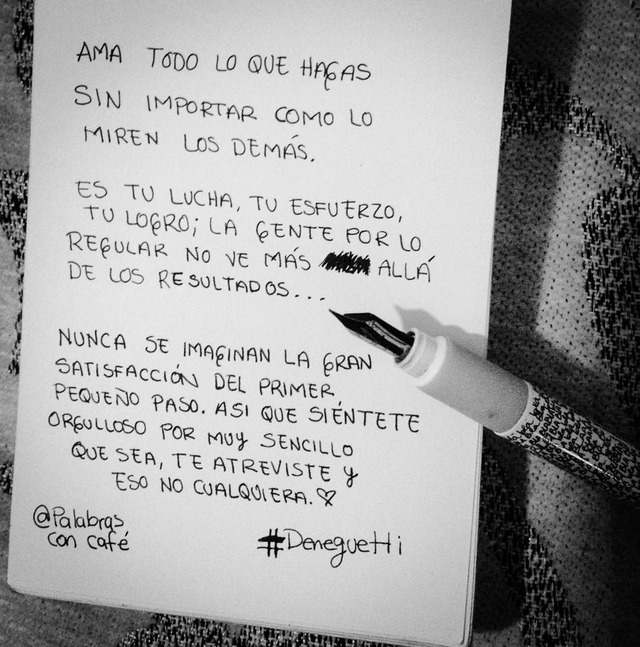 AMA TODO LO QUE HAGAS
SIN IMPORTAR COMO LO
MIREN LOS DEMÁS.
ES TU LUCHA, TU ESFUERZO,
TU LOGRO; LA GENTE POR LO
REGULAR NO VE MÁS ALLÁ
DE LOS RESULTADOS...
NUNCA SE IMAGINAN LA GRAN
SATISFACCIÓN DEL PRIMER
PEQUEÑO PASO. ASI QUE SIÉNTETE
ORGULLOSO POR MUY SENCILLO
QUE SEA, TE ATREVISTE Y
ESO NO CUALQUIERA.♡
@Palabras
con café
#Deneguetti